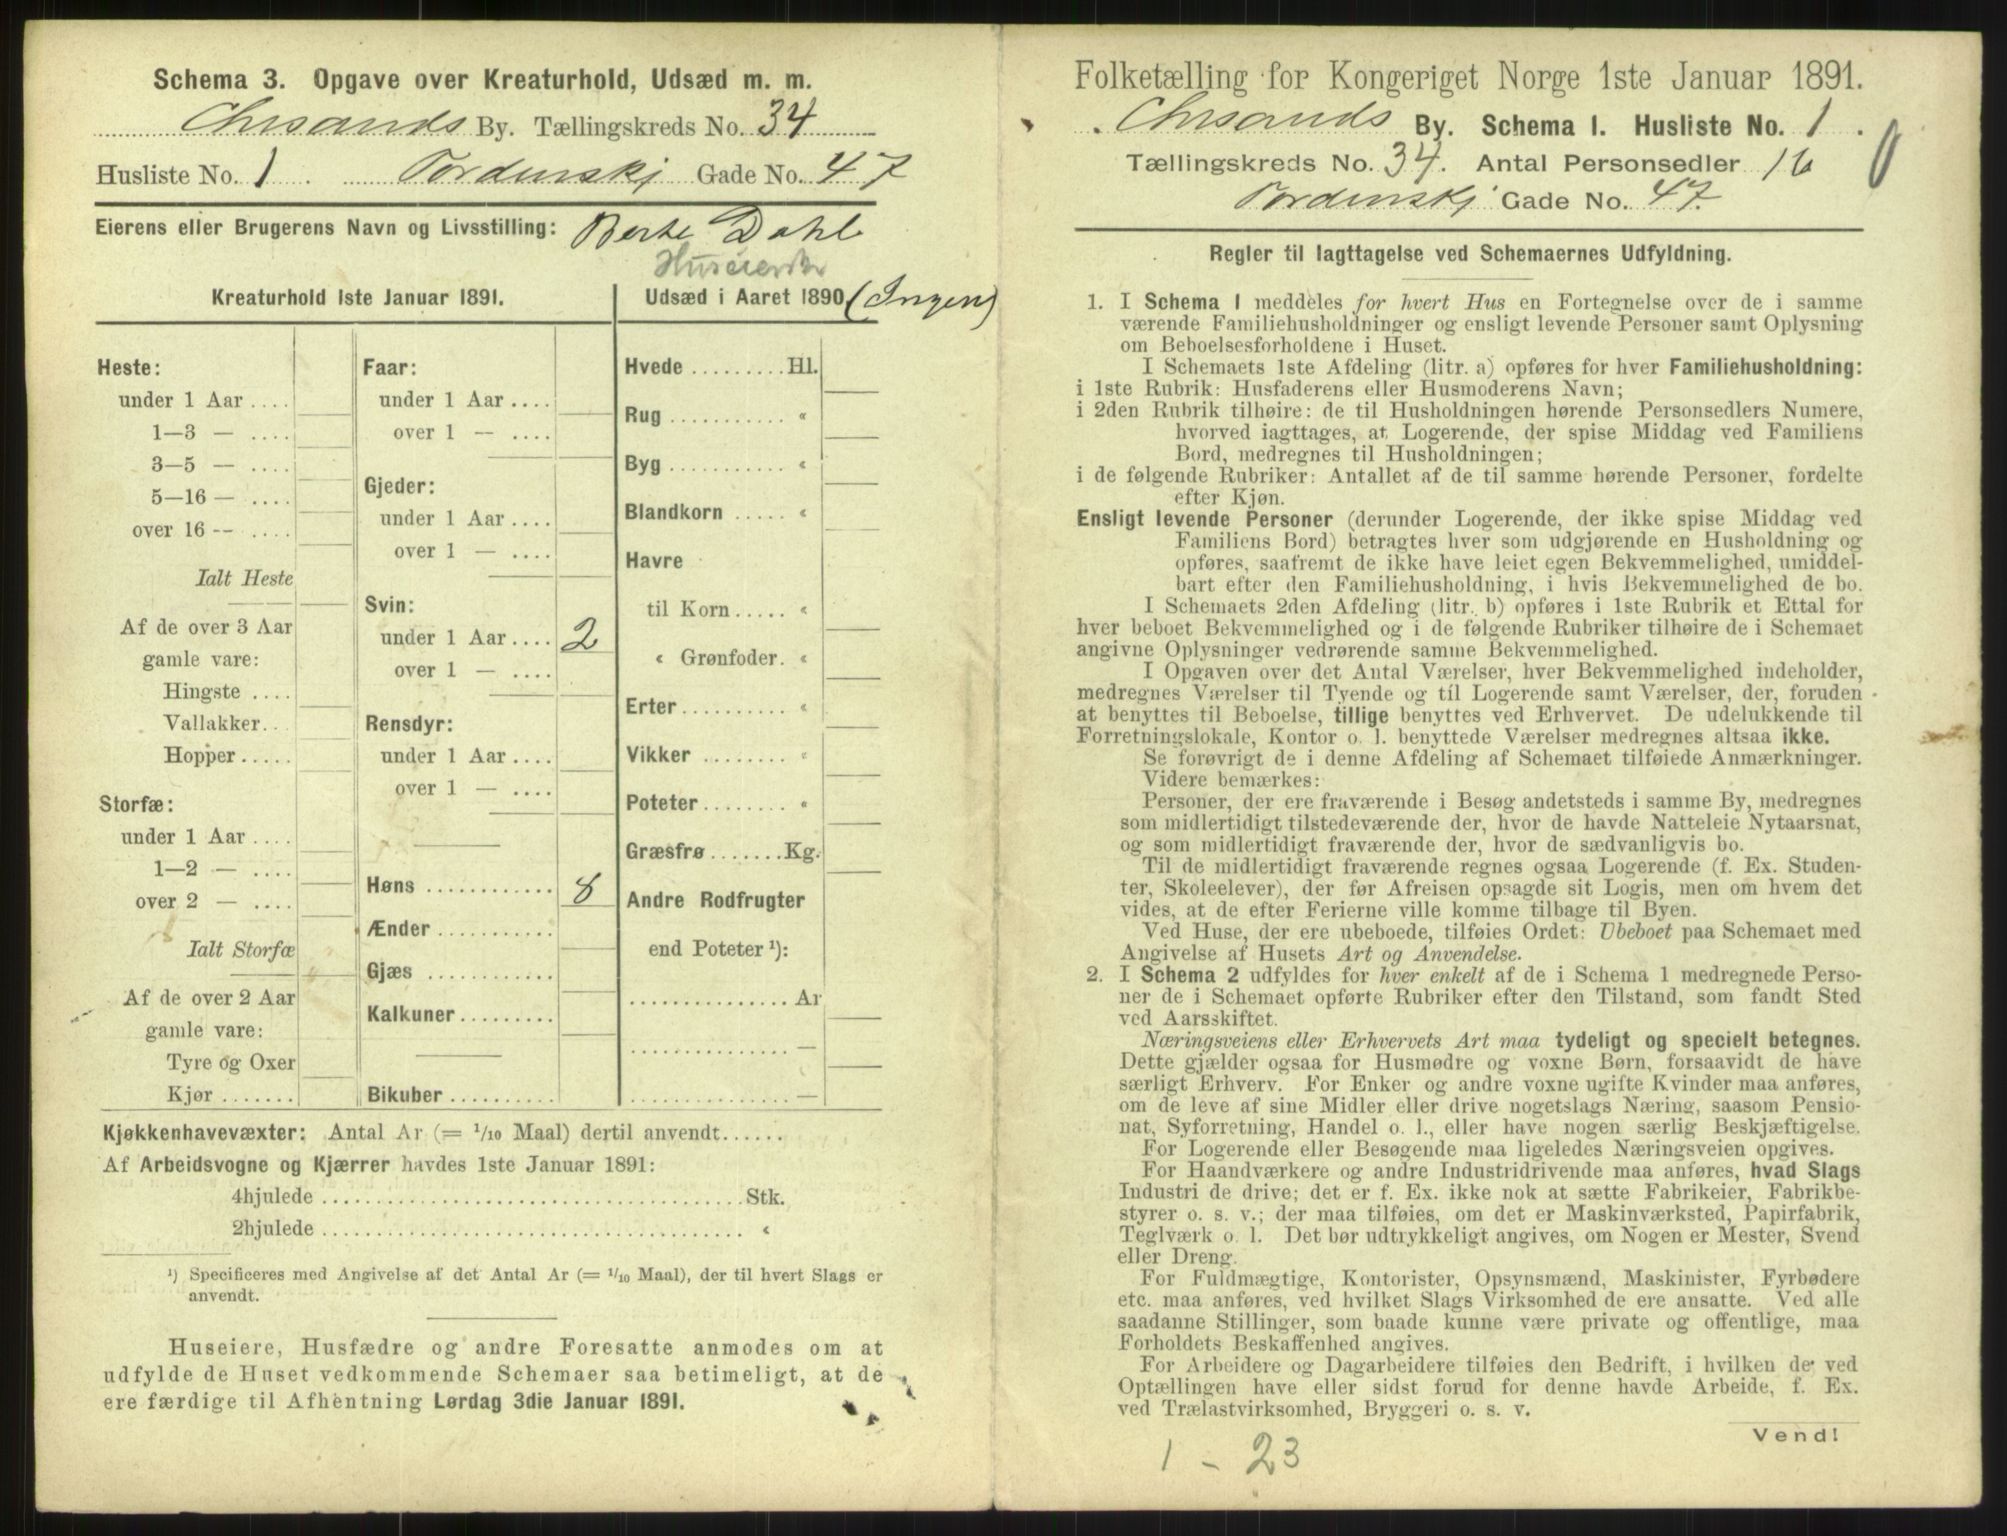 Schema 3. Opgave over Kreaturhold, Udsæd m. m.
Chrsands By. Tællingskreds No. 34
Husliste No. 1 Tordenskj Gade No. 47
Eierens eller Brugerens Navn og Livsstilling: Berte Dahl
Huseierske
Kreaturhold 1ste Januar 1891.
Heste:
under 1 Aar ....
1—3 — ....
3—5 — ....
5—16 — ....
over 16 — ....
Ialt Heste
Af de over 3 Aar
gamle vare:
Hingste ....
Vallakker...
Hopper.....
Storfæ:
under 1 Aar ....
1—2 — ....
over 2 — ....
Ialt Storfæ
Af de over 2 Aar
gamle vare:
Tyre og Oxer
Kjør.......
Faar:
under 1 Aar ....
over 1 — ....
Gjeder:
under 1 Aar ....
over 1 — ....
Svin:
under 1 Aar .... 2
over 1 — ....
Rensdyr:
under 1 Aar ....
over 1 — ....
Høns ............ 8
Ænder ...........
Gjæs ............
Kalkuner.........
Bikuber..........
Udsæd i Aaret 1890 (Ingen)
Hvede .........Hl.
Rug ........... «
Byg ........... «
Blandkorn ..... «
Havre
til Korn..... «
« Grønfoder. «
Erter.......... «
Vikker ........ «
Poteter........ «
Græsfrø.......Kg.
Andre Rodfrugter
end Poteter ¹):
............... Ar
............... —
............... —
Kjøkkenhavevæxter: Antal Ar (= 1/10 Maal) dertil anvendt......
Af Arbeidsvogne og Kjærrer havdes 1ste Januar 1891:
4hjulede ........................................Stk.
2hjulede ........................................ «
¹) Specificeres med Angivelse af det Antal Ar (= 1/10 Maal), der til hvert Slags er
anvendt.
Huseiere, Husfædre og andre Foresatte anmodes om at
udfylde de Huset vedkommende Schemaer saa betimeligt, at de
ere færdige til Afhentning Lørdag 3die Januar 1891.
Folketælling for Kongeriget Norge 1ste Januar 1891.
Chrsands By. Schema I. Husliste No. 1.
Tællingskreds No. 34. Antal Personsedler 16
Tordenskj Gade No. 47.
Regler til Iagttagelse ved Schemaernes Udfyldning.
1. I Schema I meddeles for hvert Hus en Fortegnelse over de i samme
værende Familiehusholdninger og ensligt levende Personer samt Oplysning
om Beboelsesforholdene i Huset.
I Schemaets 1ste Afdeling (litr. a) opføres for hver Familiehusholdning:
i 1ste Rubrik: Husfaderens eller Husmoderens Navn;
i 2den Rubrik tilhøire: de til Husholdningen hørende Personsedlers Numere,
hvorved iagttages, at Logerende, der spise Middag ved Familiens
Bord, medregnes til Husholdningen;
i de følgende Rubriker: Antallet af de til samme hørende Personer, fordelte
efter Kjøn.
Ensligt levende Personer (derunder Logerende, der ikke spise Middag ved
Familiens Bord) betragtes hver som udgjørende en Husholdning og
opføres, saafremt de ikke have leiet egen Bekvemmelighed, umiddel-
bart efter den Familiehusholdning, i hvis Bekvemmelighed de bo.
I Schemaets 2den Afdeling (litr. b) opføres i 1ste Rubrik et Ettal for
hver beboet Bekvemmelighed og i de følgende Rubriker tilhøire de i Schemaet
angivne Oplysninger vedrørende samme Bekvemmelighed.
I Opgaven over det Antal Værelser, hver Bekvemmelighed indeholder,
medregnes Værelser til Tyende og til Logerende samt Værelser, der, foruden
at benyttes til Beboelse, tillige benyttes ved Erhvervet. De udelukkende til
Forretningslokale, Kontor o. l. benyttede Værelser medregnes altsaa ikke.
Se forøvrigt de i denne Afdeling af Schemaet tilføiede Anmærkninger.
Videre bemærkes:
Personer, der ere fraværende i Besøg andetsteds i samme By, medregnes
som midlertidigt tilstedeværende der, hvor de havde Natteleie Nytaarsnat,
og som midlertidigt fraværende der, hvor de sædvanligvis bo.
Til de midlertidigt fraværende regnes ogsaa Logerende (f. Ex. Studen-
ter, Skoleelever), der før Afreisen opsagde sit Logis, men om hvem det
vides, at de efter Ferierne ville komme tilbage til Byen.
Ved Huse, der ere ubeboede, tilføies Ordet: Ubeboet paa Schemaet med
Angivelse af Husets Art og Anvendelse.
2. I Schema 2 udfyldes for hver enkelt af de i Schema 1 medregnede Perso-
ner de i Schemaet opførte Rubriker efter den Tilstand, som fandt Sted
ved Aarsskiftet.
Næringsveiens eller Erhvervets Art maa tydeligt og specielt betegnes.
Dette gjælder ogsaa for Husmødre og voxne Børn, forsaavidt de have
særligt Erhverv. For Enker og andre voxne ugifte Kvinder maa anføres,
om de leve af sine Midler eller drive nogetslags Næring, saasom Pensio-
nat, Syforretning, Handel o. l., eller have nogen særlig Beskjæftigelse.
For Logerende eller Besøgende maa ligeledes Næringsveien opgives.
For Haandværkere og andre Industridrivende maa anføres, hvad Slags
Industri de drive; det er f. Ex. ikke nok at sætte Fabrikeier, Fabrikbe-
styrer o. s. v.; der maa tilføies, om det er Maskinværksted, Papirfabrik,
Teglværk o. l. Det bør udtrykkeligt angives, om Nogen er Mester, Svend
eller Dreng.
For Fuldmægtige, Kontorister, Opsynsmænd, Maskinister, Fyrbødere
etc. maa anføres, ved hvilket Slags Virksomhed de ere ansatte. Ved alle
saadanne Stillinger, som baade kunne være private og offentlige, maa
Forholdets Beskaffenhed angives.
For Arbeidere og Dagarbeidere tilføies den Bedrift, i hvilken de ved
Optællingen have eller sidst forud for denne havde Arbeide, f. Ex.
ved Trælastvirksomhed, Bryggeri o. s. v.
Vend!
1 - 23